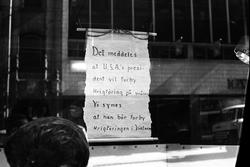 Det meddeles
at U.S.A.'s presi-
dent vil forby
krigføring på
Vi synes
at han bør forby
krigføringen i Vietnam